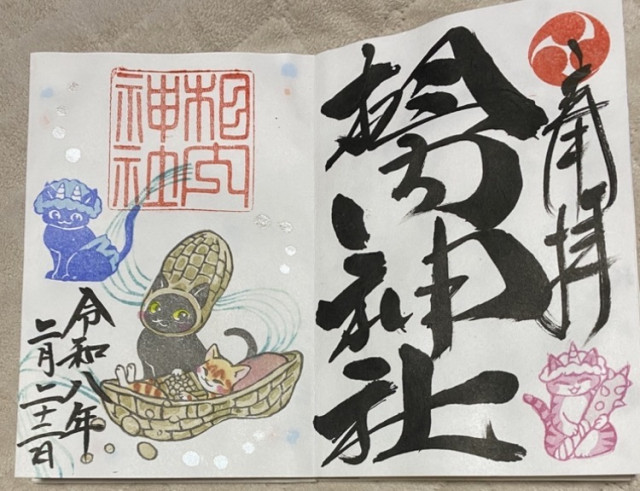 奉拝
神社
相内
神社
令和八年
二月二十二日